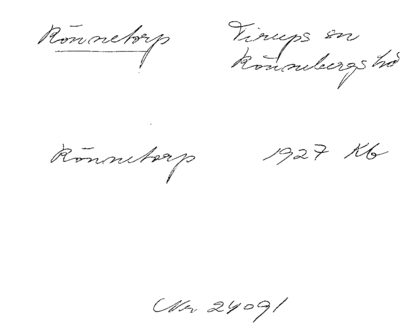 Rönnetorp Tirups sn
Rönnebergs hd
Rönnetorp 1927 Kb
Nr 24091